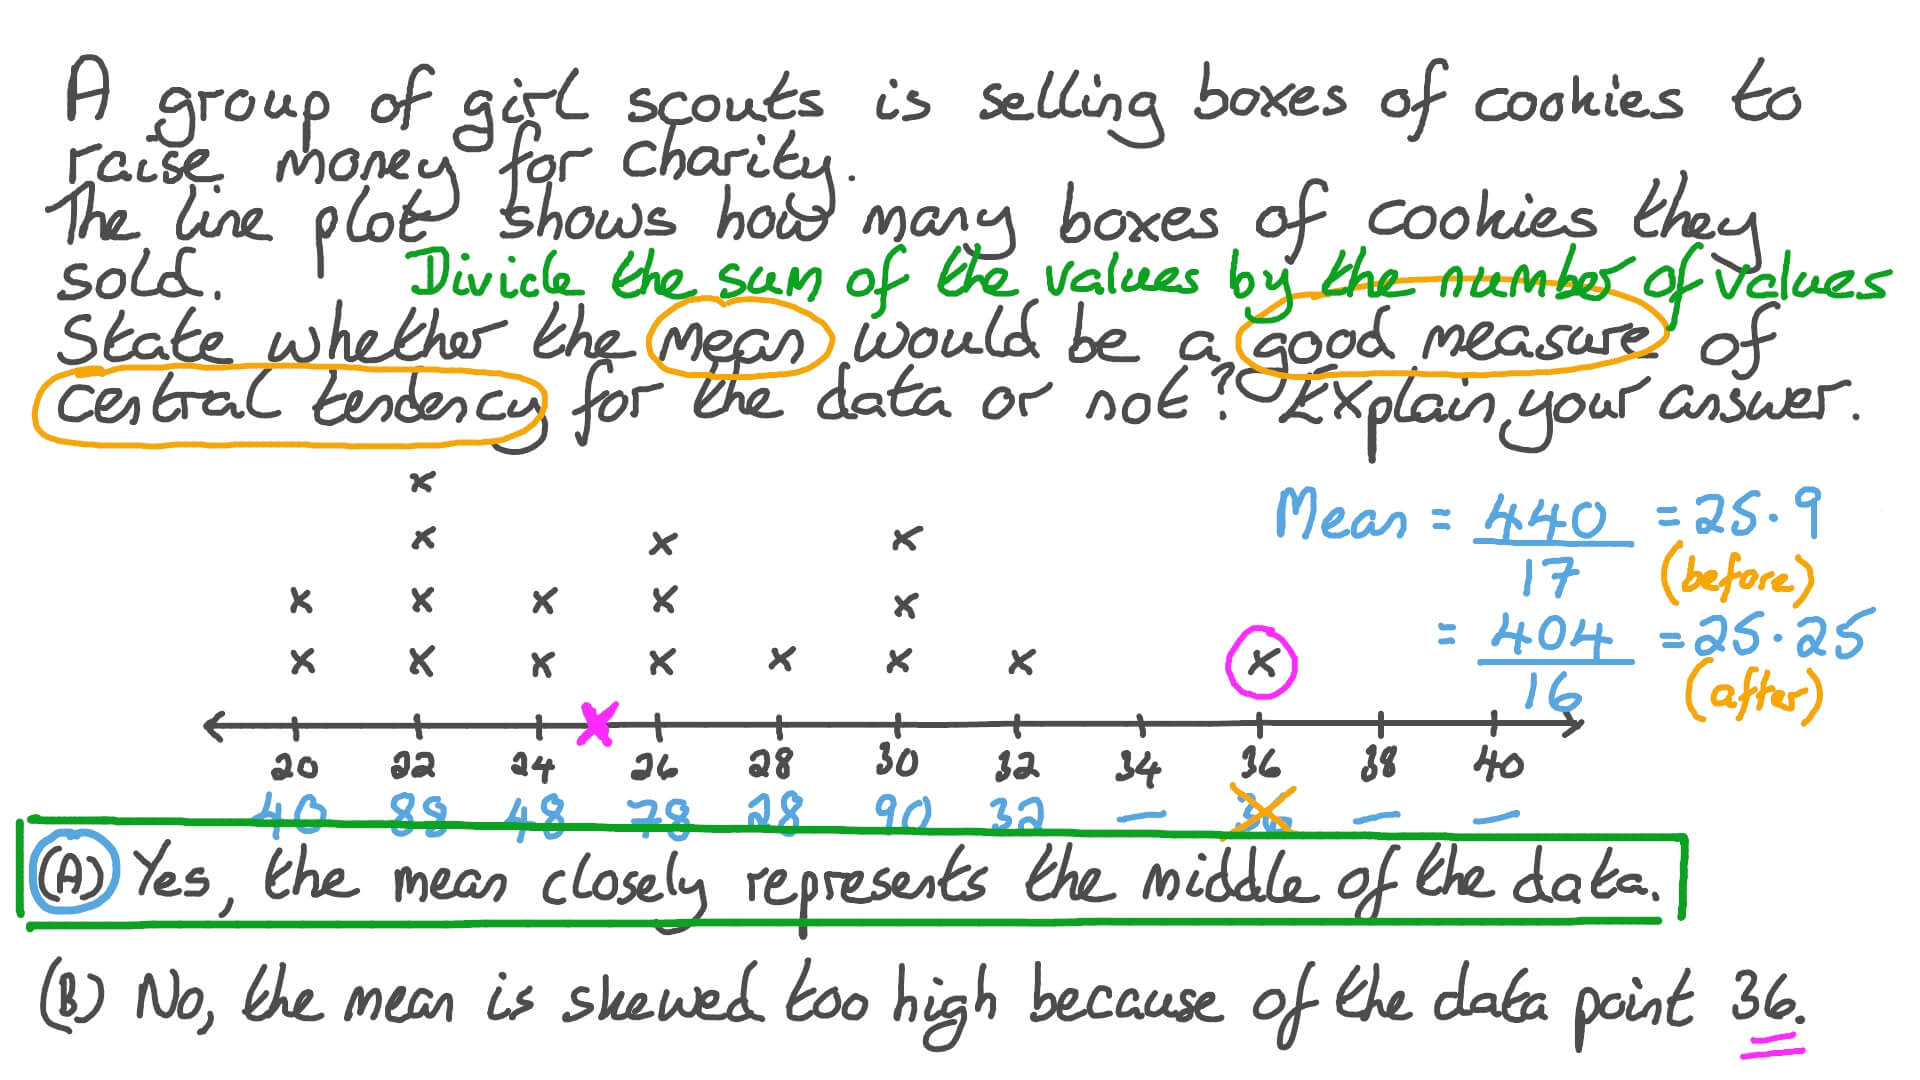 A group of girl scouts is selling boxes of cookies to
raise money for charity.
The line plot shows how many boxes of cookies they
sold. Divide the sum of the values by the number of values
State whether the mean would be a good measure of
central tendency for the data or not? Explain your answer.
Mean = 440/17 = 25.9
(before)
= 404/16 = 25.25
(after)
20 22 24 26 28 30 32 34 36 38 40
40 88 48 78 28 90 32 — 36 — —
(A) Yes, the mean closely represents the middle of the data.
(B) No, the mean is skewed too high because of the data point 36.